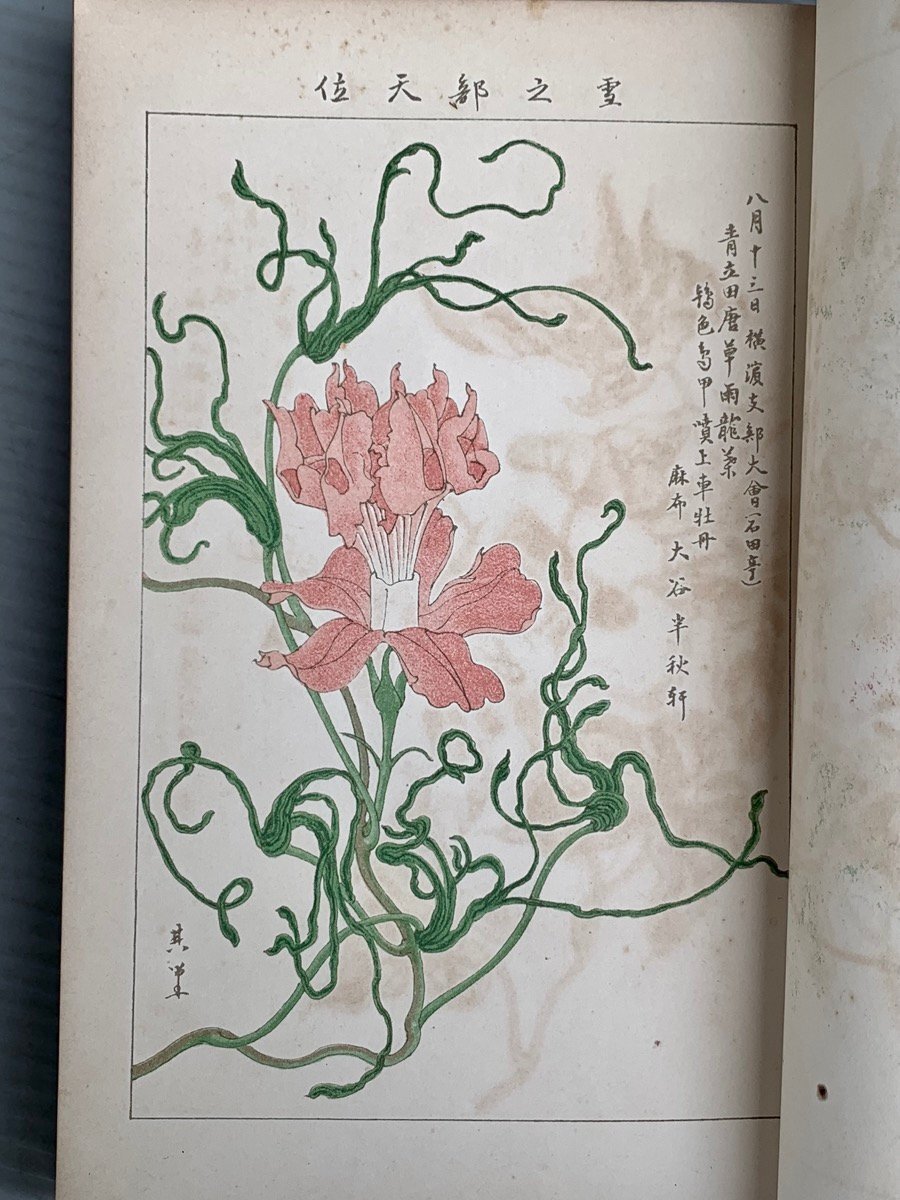 雪之部天位
八月十三日横濱支部大會(石田亭)
青立田唐草雨龍葉
鴇色鳥甲噴上車牡丹
麻布 大谷半秋軒